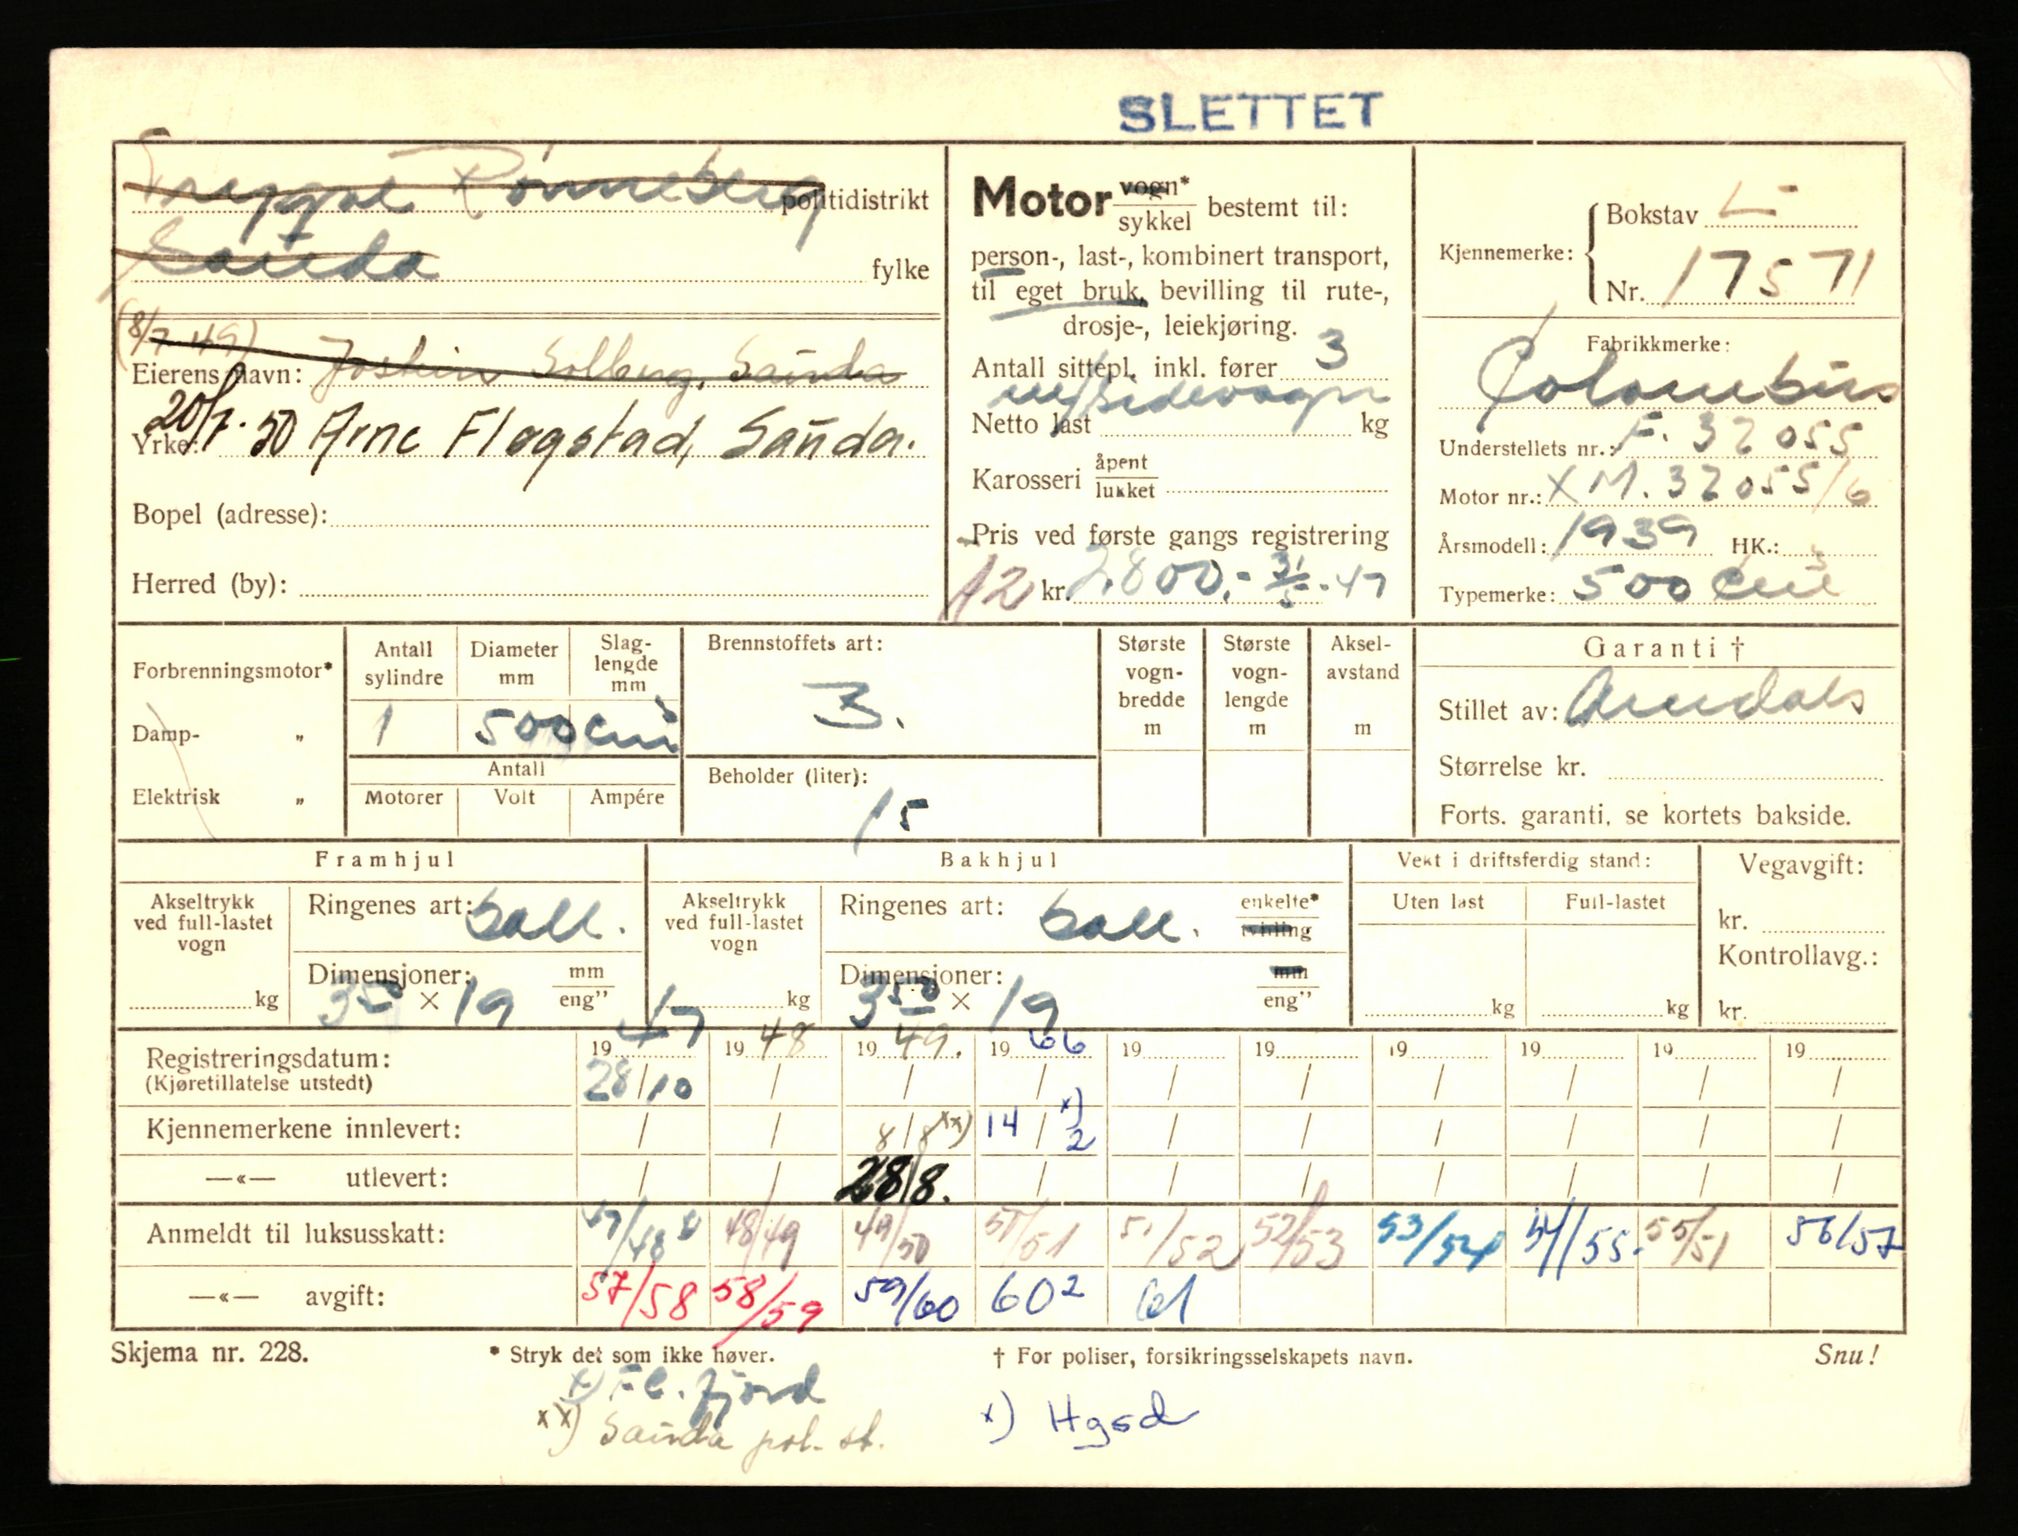 SLETTET
Trygve Rønneberg politidistrikt
Sauda fylke
(8/7 49)
Eierens navn: Jostein Solberg, Sauda
Yrke: 20/7. 50 Arne Fløgstad, Sauda.
Bopel (adresse):
Herred (by):
Motor vogn*
sykkel bestemt til:
person-, last-, kombinert transport,
til eget bruk, bevilling til rute-,
drosje-, leiekjøring.
Antall sittepl. inkl. fører 3
m/sidevogn
Netto last kg
Karosseri åpent
lukket
Pris ved første gangs registrering
12 kr. 2.800,- 31/5-47
Kjennemerke: Bokstav L-
Nr. 17571
Fabrikkmerke:
Columbus
Understellets nr.: F. 32055
Motor nr.: X M. 32055/6
Årsmodell: 1939 HK.:
Typemerke: 500 cm³
Forbrenningsmotor* Antall sylindre Diameter mm Slag-lengde mm
1 500 cm³
Damp- „
Antall
Elektrisk „ Motorer Volt Ampére
Brennstoffets art:
3.
Beholder (liter):
15
Største vogn-bredde m
Største vogn-lengde m
Aksel-avstand m
Garanti †
Stillet av: Arendals
Størrelse kr.
Forts. garanti, se kortets bakside.
Framhjul
Akseltrykk ved full-lastet vogn kg
Ringenes art: ball.
Dimensjoner: 350 × 19 mm
eng"
Bakhjul
Akseltrykk ved full-lastet vogn kg
Ringenes art: ball. enkelte*
tvilling
Dimensjoner: 350 × 19 mm
eng"
Vekt i driftsferdig stand:
Uten last Full-lastet
kg kg
Vegavgift:
kr.
Kontrollavg.:
kr.
Registreringsdatum: 19 47 19 48 19 49. 19 66 19 19 19 19 19 19
(Kjøretillatelse utstedt) 28/10 / / / / / / / / /
Kjennemerkene innlevert: / / 8/8 xx) 14/2 x) / / / / / /
—«— utlevert: / / 28/8. / / / / / / /
Anmeldt til luksusskatt: 47/48 48/49 49/50 50/51 51/52 52/53 53/54 54/55. 55/51 56/57
—«— avgift: 57/58 58/59 59/60 602 61
Skjema nr. 228. * Stryk det som ikke høver. † For poliser, forsikringsselskapets navn. Snu!
x) Fl. fjord
xx) Sauda pol. st.
x) Hgsd